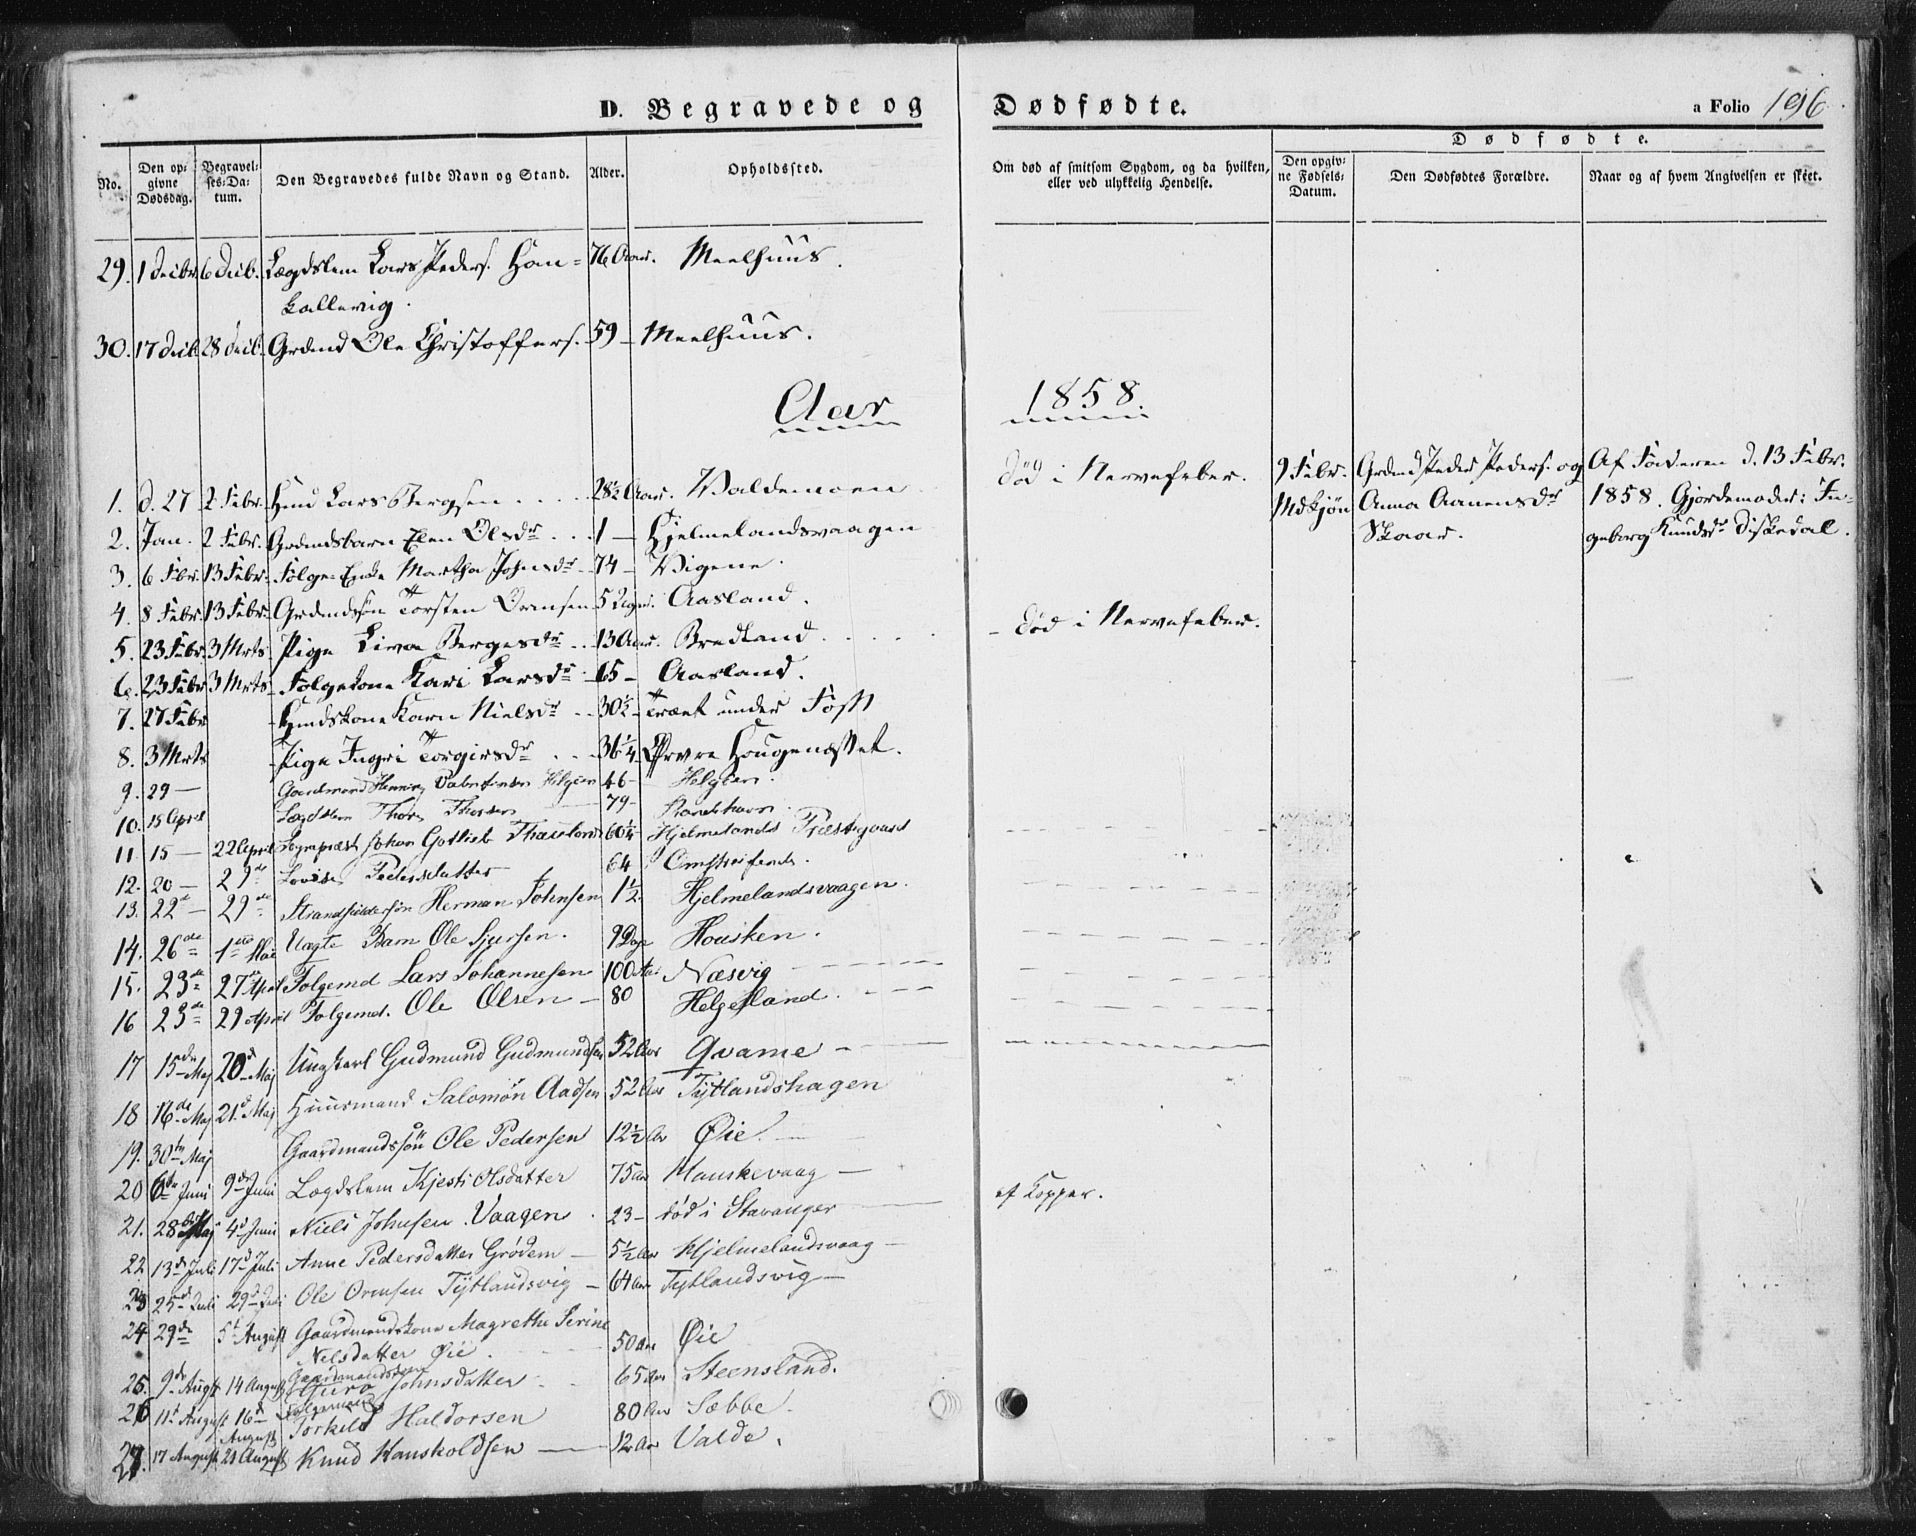 D. Begravede og Dødfødte. a Folio 196
Dødfødte.
No. Den opgivne Dødsdag. Begravelses-Datum. Den Begravedes fulde Navn og Stand. Alder. Opholdssted. Om død af smitsom Sygdom, og da hvilken, eller ved ulykkelig Hendelse. Den opgivne Fødsels-Datum. Den Dødfødtes Forældre. Naar og af hvem Angivelsen er skeet.
29. 1 Decbr. 6 Decb. Lægdslem Lars Peders. Han= 76 Aar. Meelhuus.
kallevig.
30. 17 Decb. 28 Decb. Grdmd Ole Christoffers. 59 – Meelhuus.
Aar 1858.
1. d. 27 2 Febr. Hmd Lars Bergsen 28½ Aar. Valdemoen død i Nervefeber. 9 Febr. Grdmd Peder Peders. og Af Faderen d. 13 Febr.
Anna Aanensdr 1858. Gjordemoder: In-
Skaar. geborg Knudsdr Diskedal.
2. Jan. 2 Febr. Grdmdsbarn Elen Olsdr 1 – Hjelmelandsvaagen
3. 6 Fbr. 13 Febr. Følge-Enke Martha Johnsdr 74 – Vigene.
4. 8 Febr. 13 Febr. Grdmdsøn Torsten Ormsen 5 Aasland.
5. 23 Febr. 3 Mrts Pige Siva Bergesdr 13 Aar. Bredland. – død i Nervefeber.
6. 23 Febr. 3 Mrts Følgekone Kari Larsdr 65 – Aasland.
7. 27 Febr. Hmdskone Karn Nielsdr 30½ – Træet under
8. 3 Mrts Pige Ingri Torgirsdr 36¼
9. 29 – Gaardmand Henning 46 –
10. 18 April Lægdslem Thore 79 –
11. 15 – 22 April Sognepræst Johan Gotlieb 60¼ Hjelmelands Præstegaard
12. 20 – 29de Lovise Pedersdatter 64 Omstreifende.
13. 22de – 29de Herman Johnsen 1½ Hjelmelandsvaagen.
14. 26de 1ste Mai Uægte Barn Ole Sjursen. 9 Dage Housken.
15. 23de 27de April Folgemd Lars Johannesen 100 Aar Næsvig
16 23de 29 April Folgemd. Ole Olsen – 80 Helgesland.
17 15de Maj 20d Maj Ungkarl Gudmund Gudmundsen 52 Aar Qvame
18 16de Maj 21d Maj Huusmand Salomon Aadsen 52 Aar Tytlandshagen
19. 30te Maj Gaardmandssøn Ole Pedersen 12½ Aar Øie.
20 6te Juni 9de Juni Lægdslem Kjesti Olsdatter 75 Aar Hauskevaag –
21. 28de Maj 4d Juni Niels Johnsen Vaagen 23 – død i Stavanger af Kopper.
22 13d Juli 17d Juli Anne Pedersdatter Grødem – 5½ Aar Hjelmelandsvaag –
23 25d Juli 29d Juli Ole Ormsen Tytlandsvig – 64 Aar Tytlandsvig –
24 29de 5t August Gaardmandskone Magrethe Serine
Nelsdatter Øie. 50 Aar Øie
25. 9de Augst 14 August Gaardmandskone Guro Johnsdatter 65 Aar Steensland.
26 11t August 16d August Folgemand Torkild Haldorsen 80 Aar Sæbbe
27. 17 August 21 August Knud Hauskoldsen – 12 Aar Valde.